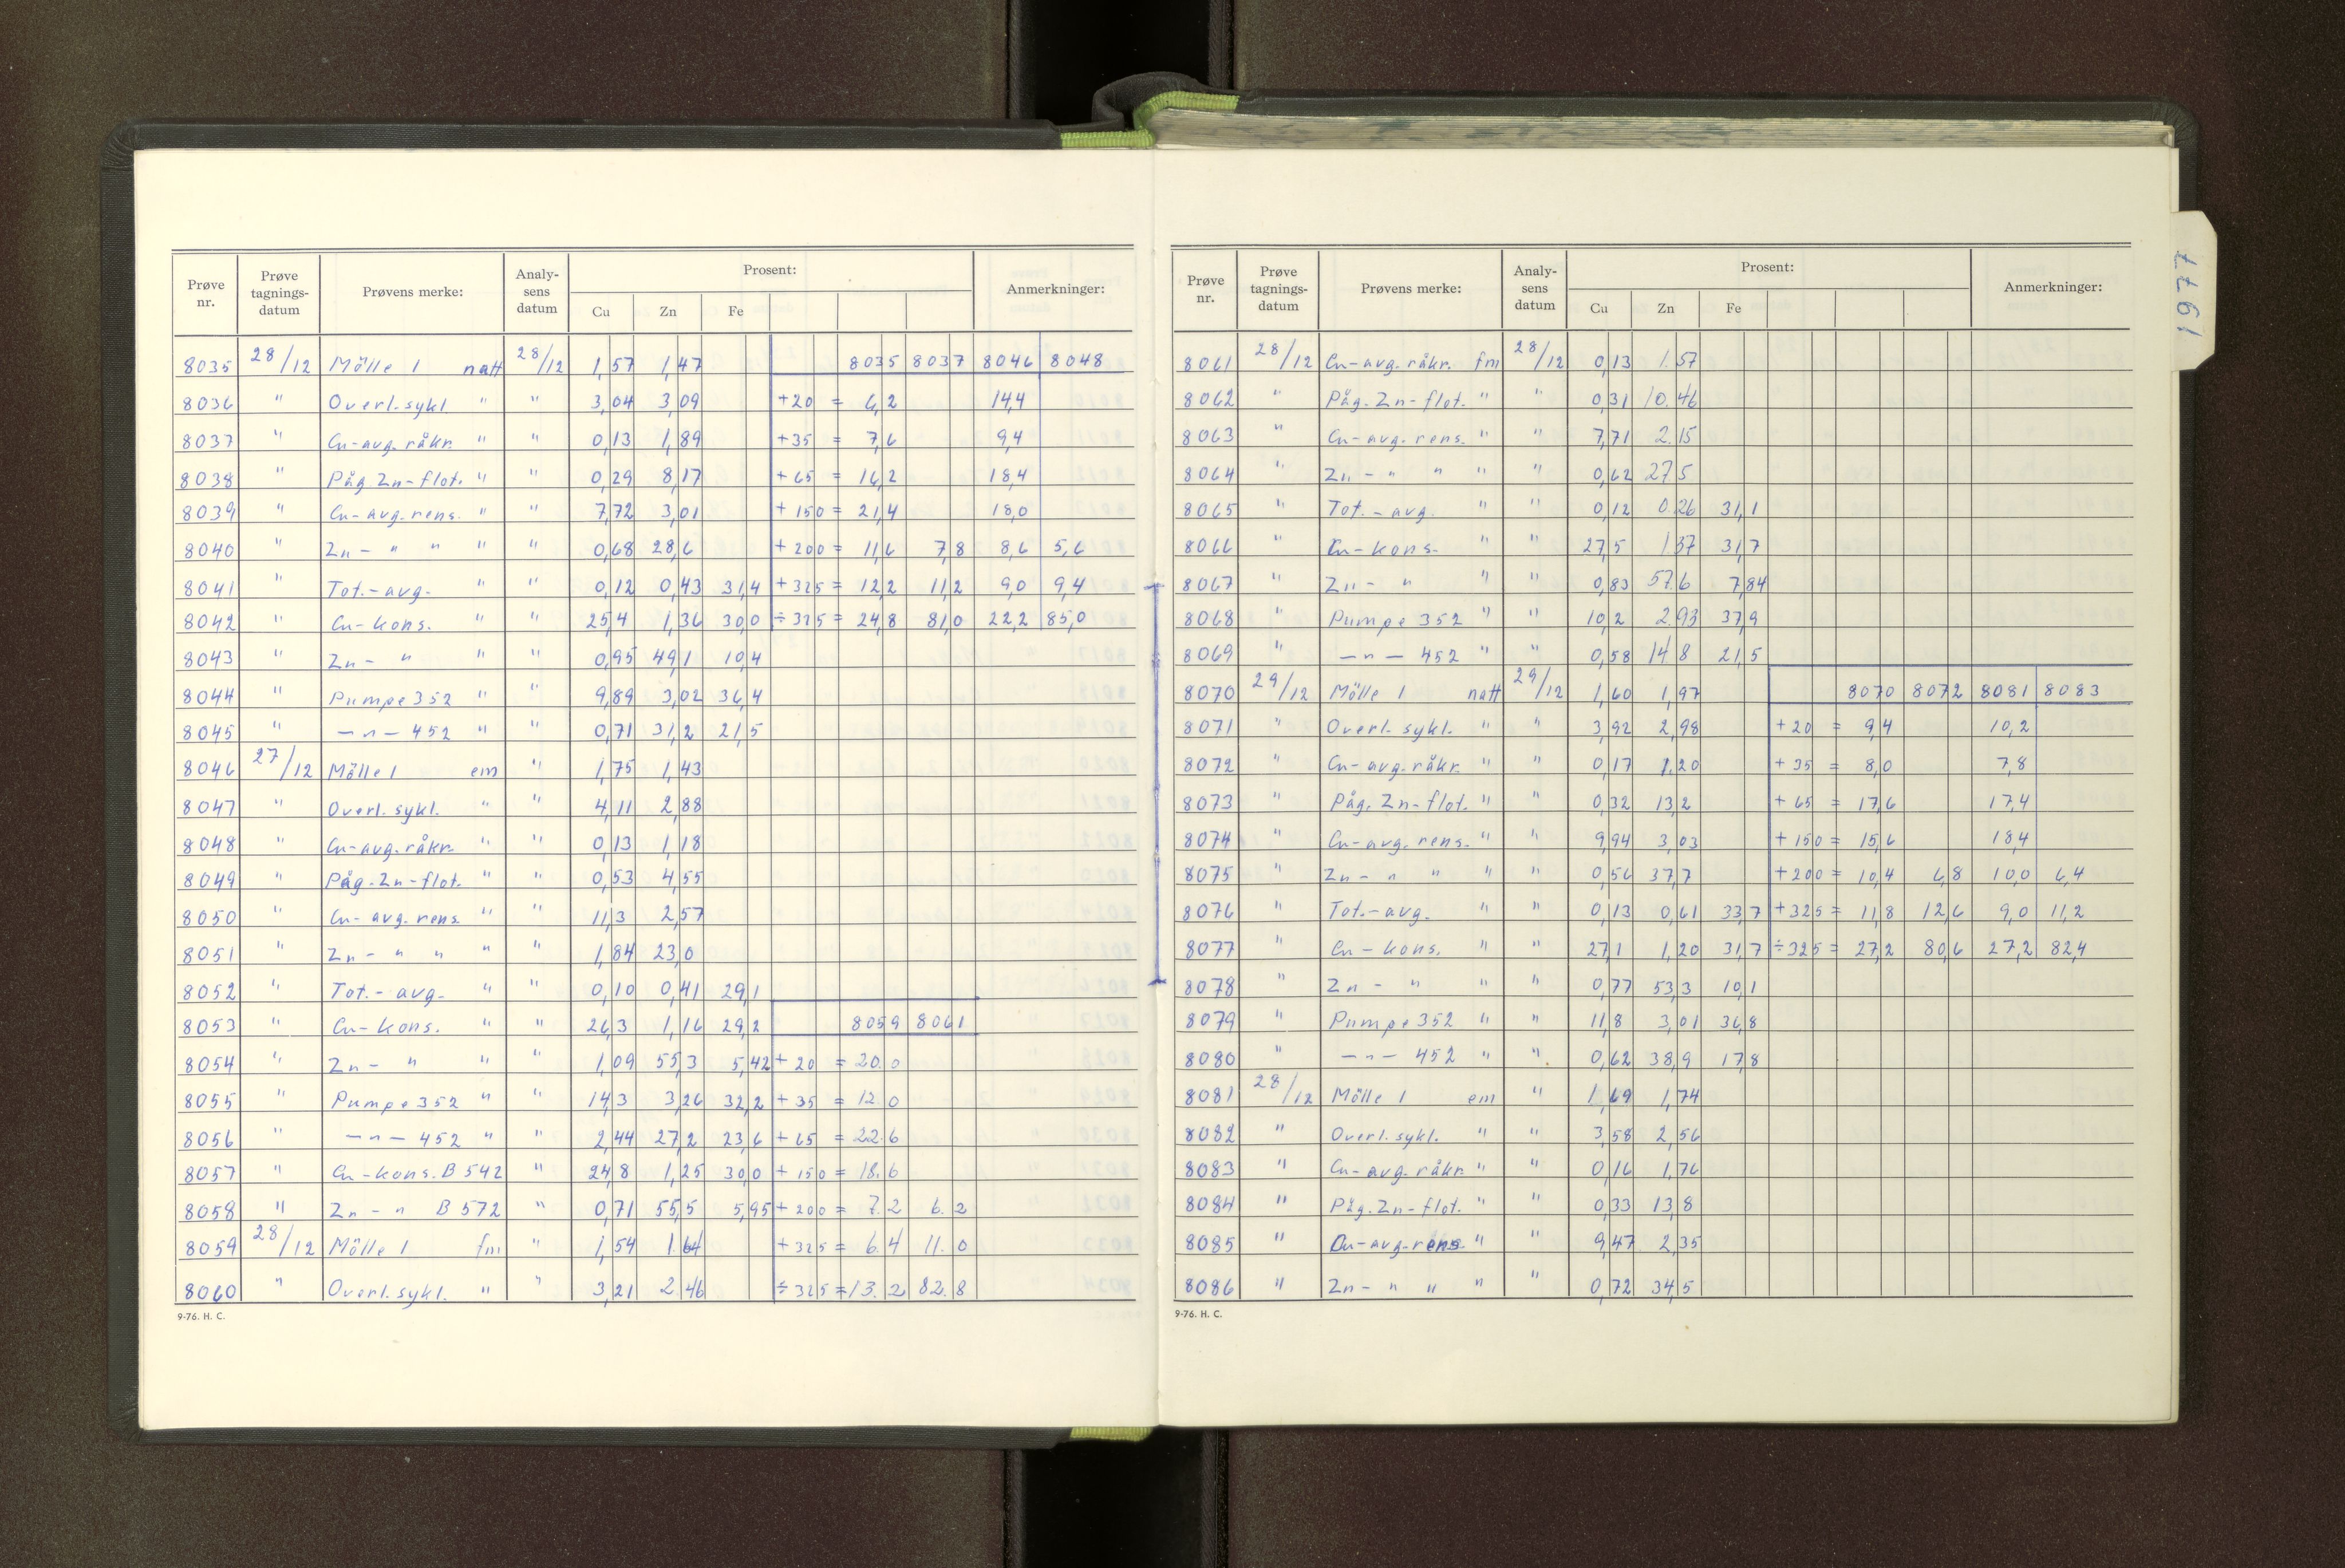 Prøve nr. | Prøve tagnings-datum | Prøvens merke: | Analy-sens datum | Prosent: Cu | Zn | Fe | Anmerkninger:
8035 28/12 Mölle 1 natt 28/12 1,57 1,47 8035 8037 8046 8048
8036 " Overl. sykl " " 3,04 3,09 +20 = 6,2 14,4
8037 " Cu-avg. råkr. " " 0,13 1,89 +35 = 7,6 9,4
8038 " Påg Zn-flot. " " 0,29 8,17 +65 = 16,2 18,4
8039 " Cu-avg. rens. " " 7,72 3,01 +150 = 21,4 18,0
8040 " Zn- " " " " 0,68 28,6 +200 = 11,6 7,8 8,6 5,6
8041 " Tot.-avg. " " 0,12 0,43 31,4 +325 = 12,2 11,2 9,0 9,4
8042 " Cu-kons. " " 25,4 1,36 30,0 ÷325 = 24,8 81,0 22,2 85,0
8043 " Zn- " " " 0,95 49,1 10,4
8044 " Pumpe 352 " " 9,89 3,02 36,4
8045 " —"— 452 " " 0,71 31,2 21,5
8046 27/12 Mölle 1 em " 1,75 1,43
8047 " Overl. sykl. " " 4,11 2,88
8048 " Cu-avg. råkr. " " 0,13 1,18
8049 " Påg. Zn-flot. " " 0,53 4,55
8050 " Cu-avg. rens. " " 11,3 2,57
8051 " Zn- " " " " 1,84 23,0
8052 " Tot.-avg. " " 0,10 0,41 29,1
8053 " Cu-kons. " " 26,3 1,16 29,2 8059 8061
8054 " Zn- " " " 1,09 55,3 5,42 +20 = 20.0
8055 " Pumpe 352 " " 14,3 3,26 32,2 +35 = 12.0
8056 " —"— 452 " " 2,44 27,2 23,6 +65 = 22.6
8057 " Cu-kons. B 542 " 24,8 1,25 30,0 +150 = 18.6
8058 " Zn- " B 572 " 0,71 55,5 5,95 +200 = 7.2 6.2
8059 28/12 Mölle 1 fm " 1,54 1.64 +325 = 6.4 11.0
8060 " Overl. sykl. " " 3,21 2.46 ÷325 = 13.2 82.8
9-76. H. C.
1977
Prøve nr. | Prøve tagnings-datum | Prøvens merke: | Analy-sens datum | Prosent: Cu | Zn | Fe | Anmerkninger:
8061 28/12 Cu-avg. råkr. fm 28/12 0,13 1.57
8062 " Påg. Zn-flot. " " 0,31 10.46
8063 " Cu-avg. rens. " " 7,71 2.15
8064 " Zn- " " " " 0,62 27.5
8065 " Tot.-avg. " " 0,12 0.26 31,1
8066 " Cu-kons. " " 27,5 1.37 31,7
8067 " Zn- " " " 0,83 57.6 7,84
8068 " Pumpe 352 " " 10,2 2.93 37,9
8069 " —"— 452 " " 0,58 14.8 21,5
8070 29/12 Mölle 1 natt 29/12 1,60 1,97 8070 8072 8081 8083
8071 " Overl. sykl. " " 3,92 2,98 +20 = 9,4 10,2
8072 " Cu-avg. råkr. " " 0,17 1,20 +35 = 8,0 7,8
8073 " Påg. Zn-flot. " " 0,32 13,2 +65 = 17,6 17,4
8074 " Cu-avg. rens. " " 9,94 3,03 +150 = 15,6 18,4
8075 " Zn- " " " " 0,56 37,7 +200 = 10,4 6,8 10,0 6,4
8076 " Tot.-avg. " " 0,13 0,61 33,7 +325 = 11,8 12,6 9,0 11,2
8077 " Cu-kons. " " 27,1 1,20 31,7 ÷325 = 27,2 80,6 27,2 82,4
8078 " Zn- " " " 0,77 53,3 10,1
8079 " Pumpe 352 " " 11,8 3,01 36,8
8080 " —"— 452 " " 0,62 38,9 17,8
8081 28/12 Mölle 1 em " 1,69 1,74
8082 " Overl. sykl. " " 3,58 2,56
8083 " Cu-avg. råkr. " " 0,16 1,76
8084 " Påg. Zn-flot. " " 0,33 13,8
8085 " Cu-avg. rens. " " 9,47 2,35
8086 " Zn- " " " " 0,72 34,5
9-76. H. C.